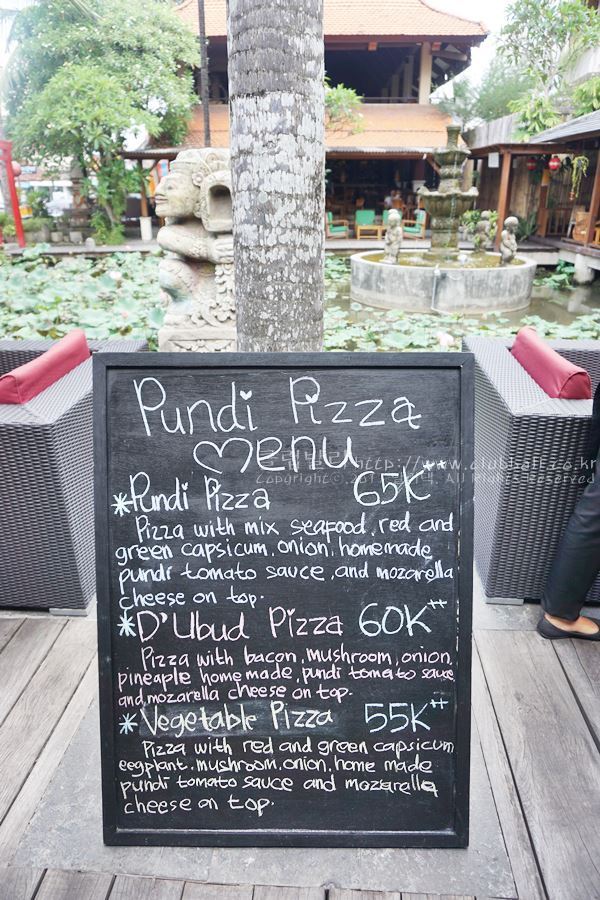 Pundi Pizza
menu
*Pundi Pizza 65K
Pizza with mix seafood, red and
green capsicum, onion, homemade
pundi tomato sauce, and mozarella
cheese on top.
*D'Ubud Pizza 60K++
Pizza with bacon, mushroom, onion,
pineapple home made, pundi tomato sauce
and, mozarella cheese on top.
*Vegetable Pizza 55K++
Pizza with red and green capsicum
eegplant, mushroom, onion, home made
pundi tomato sauce and mozarella
cheese on top.